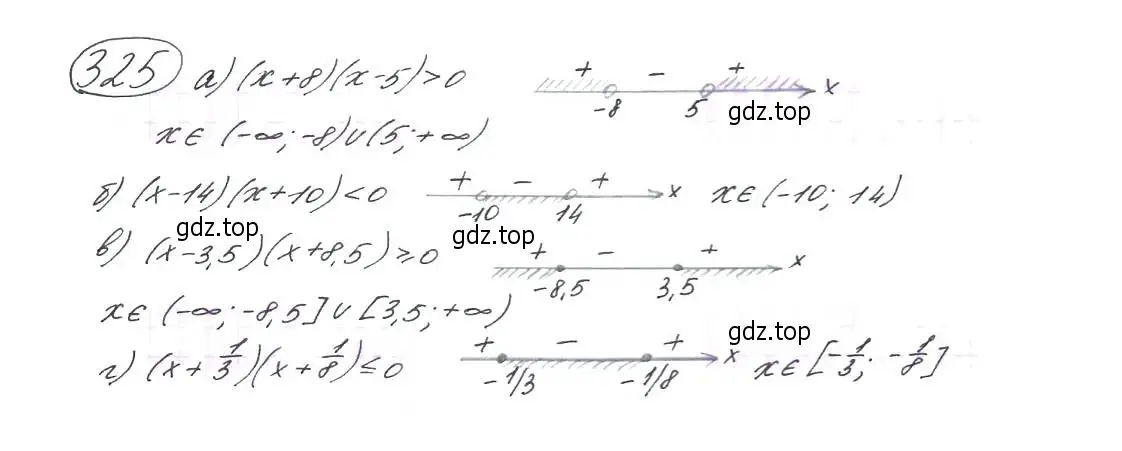 325 а) (x+8)(x-5)>0 + - + -8 5 x
gdz.top
x∈ (-∞; -8)∪(5; +∞)
б) (x-14)(x+10)<0 + - + -10 14 x x∈(-10; 14)
gdz.top gdz.top
в) (x-3,5)(x+8,5)≥0 + - + -8,5 3,5 x
x∈ (-∞; -8,5]∪[3,5; +∞)
gdz.top
г) (x+1/3)(x+1/8)≤0 + - + -1/3 -1/8 x x∈[-1/3; -1/8]